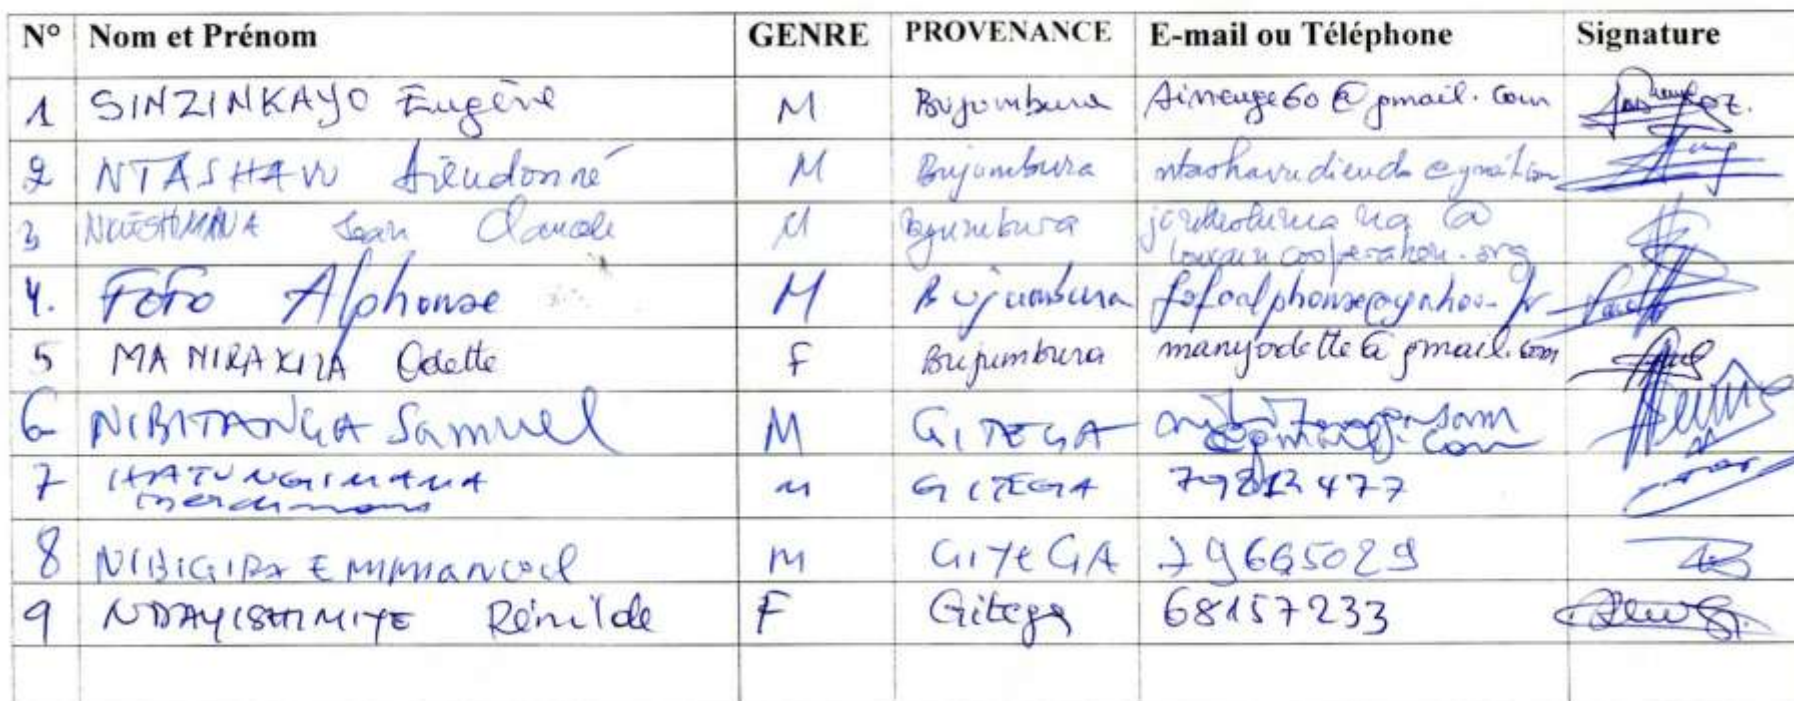 N° Nom et Prénom GENRE PROVENANCE E-mail ou Téléphone Signature
1 SINZINKAYO Eugène M Bujumbura Sineuge60@gmail.com
2 NTASHAVU Dieudonné M Bujumbura ntashavudieudo@gmail.com
3 NKESHIMANA Jean Claude M Bujumbura
louvaincooperation.org
4. FOFO Alphonse M Bujumbura fofoalphonse@yahoo.fr
5 MANIRAKIZA Odette F Bujumbura manyodette@gmail.com
6 NIBITANGA Samuel M GITEGA
@gmail.com
7 HATUNGIMANA M GITEGA
8 NIBIGIRA Emmanuel M GITEGA 79665029
9 NDAYISHIMIYE Rémilde F Gitega 68157233